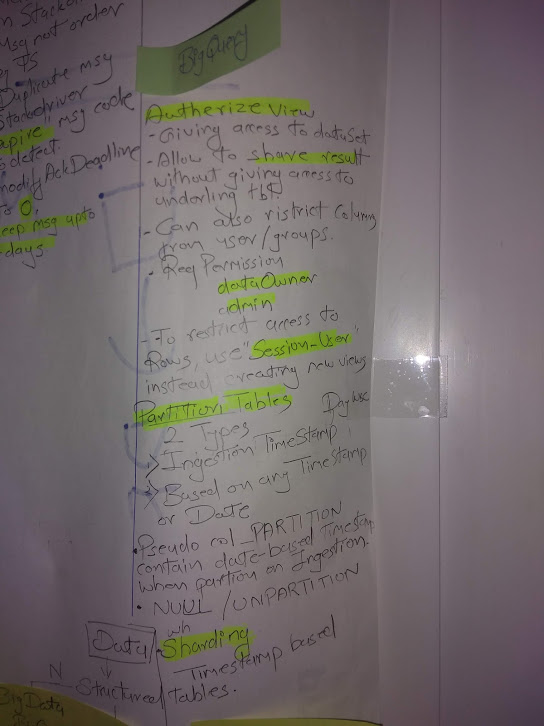 n Stack
Msg not order
by TS
Duplicate msg
Stackdriver
expire msg code
s detect.
modifyAckDeadline
to 0.
eep msg upto
-days
BigQuery
Autherize View
- Giving access to dataset
- Allow to share result
without giving access to
underling tbl.
- Can also ristrict Column
from user/groups.
- Req Permission
dataOwner
admin
- To restrict access to
Rows, use "Session-User"
instead creating new views
Partition Tables
2 Types
> Ingestion TimeStamp,
Day wise
> Based on any TimeStamp
or Date
• Pseudo col _PARTITION
contain date-based Timestamp
when partion on Ingestion.
• NUUL / UNPARTITION
wh
- Sharding
Timestamp based
tables.
Data
N
Structured
Big Data